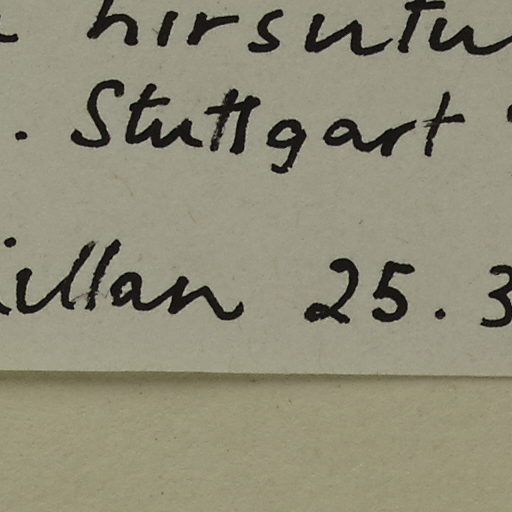 hirsutu
. Stuttgart
illan 25. 3